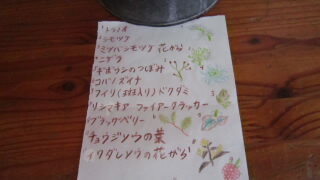 トラノオ
シモツケ
ミツバシモツケ 花がら
ニゲラ
ギボウシのつぼみ
コバノズイナ
フイリ(斑入り)ドクダミ
リシマキア ファイアークラッカー
ブラックベリー
チョウジソウの葉
イワダレソウの花がら